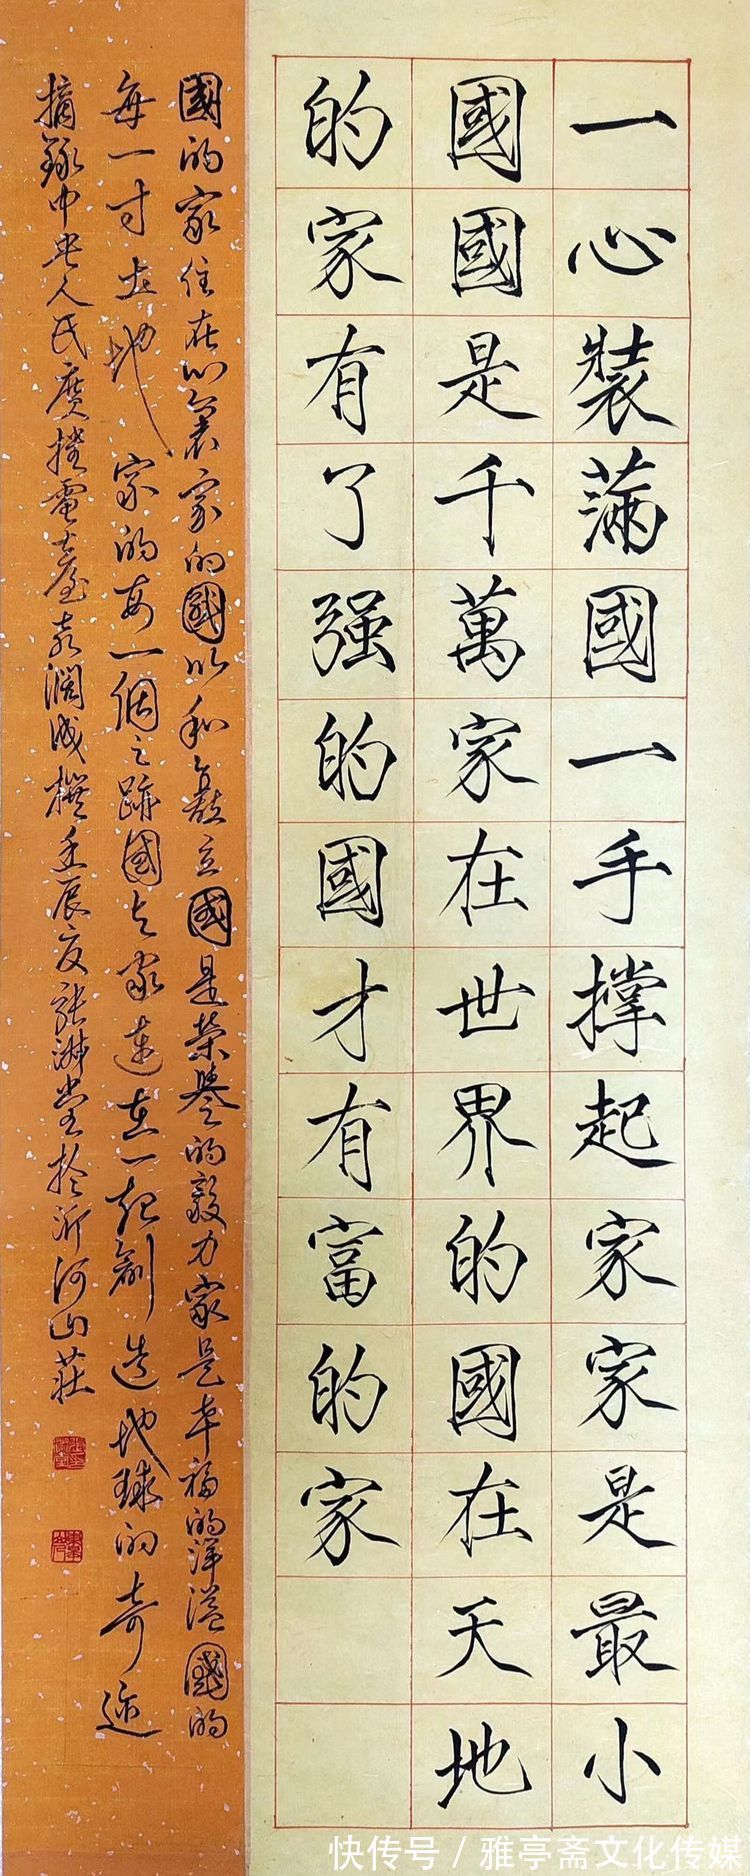 一心裝滿國一手撐起家家是最小
國國是千萬家在世界的國在天地
的家有了强的國才有富的家
國的家住在心裏家的國以和矗立國是榮譽的毅力家是幸福的洋溢國的
每一寸土地家的每一個足跡國與家連在一起創造地球的奇迹
摘錄中央人民廣播電臺 壬辰夏張 堂於沂河山莊
快传号 / 雅亭斋文化传媒